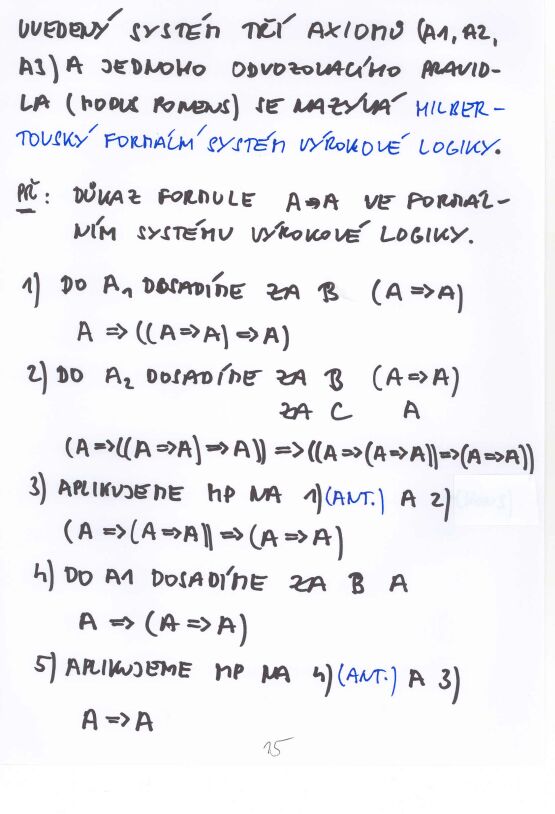 UVEDENÝ SYSTÉM TŘÍ AXIOMŮ (A1, A2,
A3) A JEDNOHO ODVOZOVACÍHO PRAVID-
LA (MODUS PONENS) SE NAZÝVÁ HILBER-
TOVSKÝ FORMÁLNÍ SYSTÉM VÝROKOVÉ LOGIKY.
PŘ: DŮKAZ FORMULE A⇒A VE FORMÁL-
NÍM SYSTÉMU VÝROKOVÉ LOGIKY.
1) DO A₁ DOSADÍME ZA B (A⇒A)
A ⇒ ((A⇒A) ⇒ A)
2) DO A₂ DOSADÍME ZA B (A⇒A)
ZA C A
(A⇒((A⇒A)⇒A)) ⇒ ((A⇒(A⇒A))⇒(A⇒A))
3) APLIKUJEME MP NA 1)(ANT.) A 2)
(A⇒(A⇒A)) ⇒ (A⇒A)
4) DO A1 DOSADÍME ZA B A
A ⇒ (A⇒A)
5) APLIKUJEME MP NA 4)(ANT.) A 3)
A ⇒ A
15